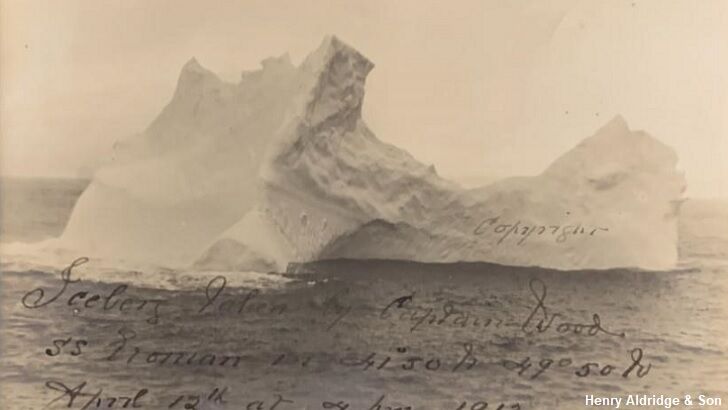 Copyright
Iceberg taken by Captain Wood.
SS Etonian in 41°50 N 49°50 W
April 12th at 4 p.m. 1912
Henry Aldridge & Son